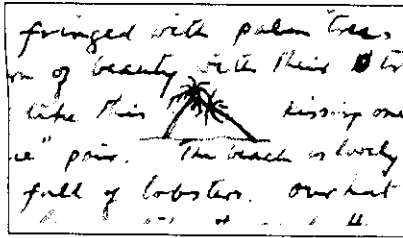 fringed with palm trees
of beauty with their
like this kissing one
pair. The beach is lovely
full of lobsters. Our hat